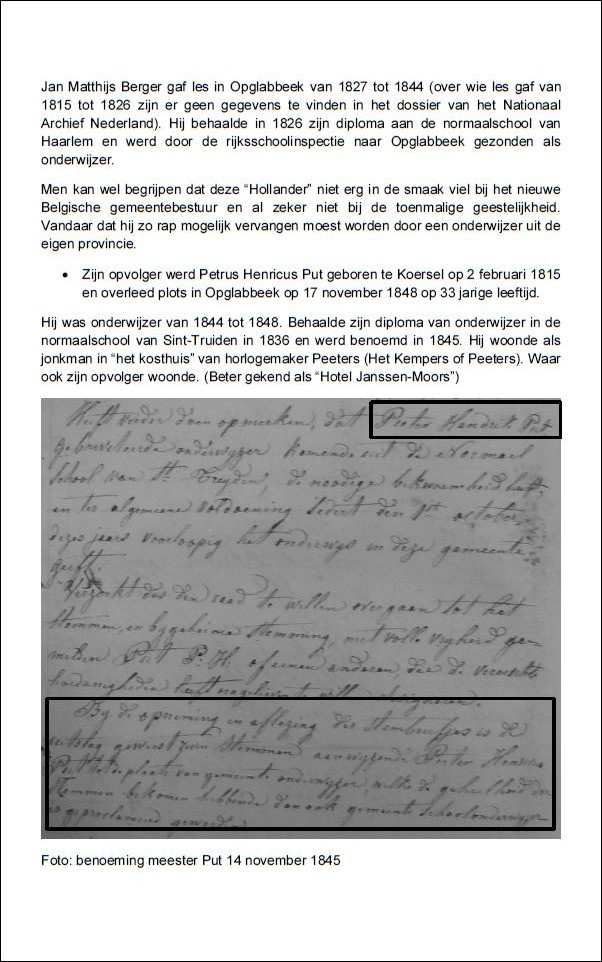 Jan Matthijs Berger gaf les in Opglabbeek van 1827 tot 1844 (over wie les gaf van
1815 tot 1826 zijn er geen gegevens te vinden in het dossier van het Nationaal
Archief Nederland). Hij behaalde in 1826 zijn diploma aan de normaalschool van
Haarlem en werd door de rijksschoolinspectie naar Opglabbeek gezonden als
onderwijzer.
Men kan wel begrijpen dat deze “Hollander” niet erg in de smaak viel bij het nieuwe
Belgische gemeentebestuur en al zeker niet bij de toenmalige geestelijkheid.
Vandaar dat hij zo rap mogelijk vervangen moest worden door een onderwijzer uit de
eigen provincie.
• Zijn opvolger werd Petrus Henricus Put geboren te Koersel op 2 februari 1815
en overleed plots in Opglabbeek op 17 november 1848 op 33 jarige leeftijd.
Hij was onderwijzer van 1844 tot 1848. Behaalde zijn diploma van onderwijzer in de
normaalschool van Sint-Truiden in 1836 en werd benoemd in 1845. Hij woonde als
jonkman in “het kosthuis” van horlogemaker Peeters (Het Kempers of Peeters). Waar
ook zijn opvolger woonde. (Beter gekend als “Hotel Janssen-Moors”)
Heeft verder doen opmerken, dat Peeter Hendrik Put
gebreveteerde onderwyzer komende uit de Normael
School van St. Truyden, de noodige bekwaemheid heeft,
en ter algemeene voldoening sedert den 1st october
dezes jaers voorloopig het onderwys in deze gemeente
geeft.
Verzoekt dus den raed te willen overgaen tot het
stemmen, en by geheime stemming, met volle vryheid ge-
melden Put P. H. of eenen anderen, die de vereischte
hoedanigheden heeft
By de opnening en aflezing der stembriefjes is de
uitslag geweest stemmen aenwyzende Peeter Henri
Put tot de plaets van gemeente onderwyzer, welke de geheelheid der
stemmen bekomen hebbende dan ook gemeente schoolonderwyzer
is geproclameerd geworden
Foto: benoeming meester Put 14 november 1845